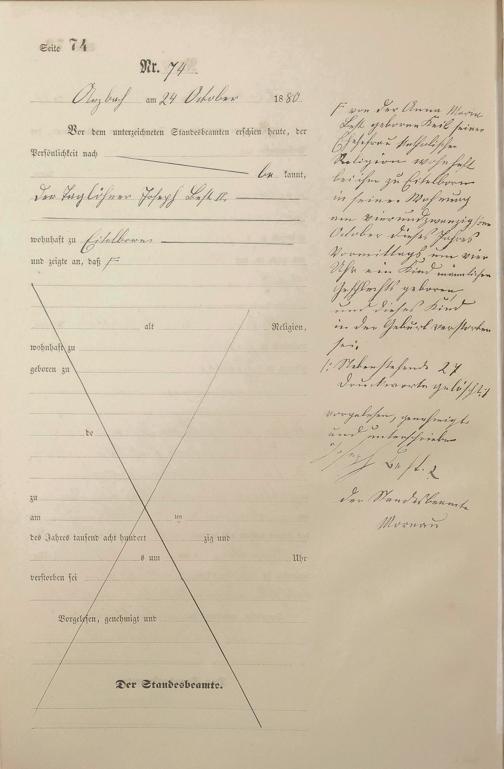 Seite 74
Nr. 74
Arzbach am 24 October 1880
Vor dem unterzeichneten Standesbeamten erschien heute, der
Persönlichkeit nach
be kannt,
der Taglöhner Joseph Best II.
wohnhaft zu Eitelborn
und zeigte an, daß F
alt Religion,
wohnhaft zu
geboren zu
de
zu
am ten
des Jahres tausend acht hundert zig und
s um Uhr
verstorben sei
Vorgelesen, genehmigt und
Der Standesbeamte.
F von der Anna Maria
Best geborene Keil seiner
Ehefrau katholischer
Religion wohnhaft
bei ihm zu Eitelborn
in seiner Wohnung
am vierundzwanzigsten
October dieses Jahres
Vormittags um vier
Uhr ein Kind männlichen
Geschlechts geboren
und dieses Kind
in der Geburt verstorben
sei.
Nebenstehende 27
Druckworte gelöscht
vorgelesen, genehmigt
und unterschrieben
Joseph Best. 2
der Standesbeamte